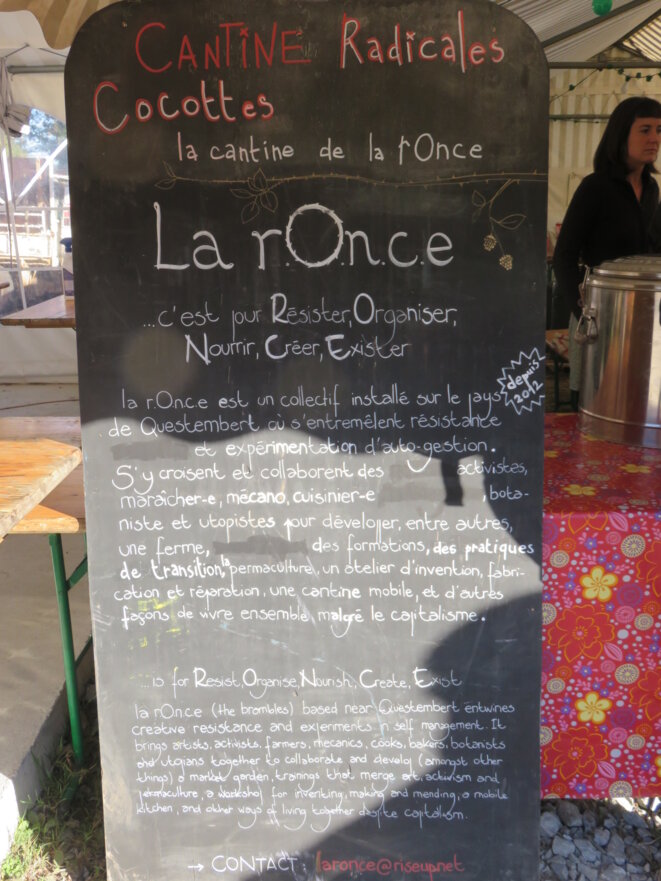 CANTINE Radicales
Cocottes
la cantine de la rOnce
La r.O.n.c.e
...c'est pour Résister, Organiser,
Nourrir, Créer, Exister
depuis
2012
la r.O.n.c.e est un collectif installé sur le pays
de Questembert où s'entremêlent résistance
et expérimentation d'auto-gestion.
S'y croisent et collaborent des activistes,
maraîcher-e, mécano, cuisinier-e , bota-
niste et utopistes pour développer, entre autres,
une ferme, des formations, des pratiques
de transition, permaculture, un atelier d'invention, fabri-
cation et réparation, une cantine mobile, et d'autres
façons de vivre ensemble, malgré le capitalisme.
...is for Resist, Organise, Nourish, Create, Exist
la r.O.n.c.e (the brambles) based near Questembert entwines
creative resistance and experiments in self management. It
brings artists, activists, farmers, mecanics, cooks, bakers, botanists
and utopians together to collaborate and develop (amongst other
things) a market garden, trainings that merge art, activism and
permaculture, a workshop for inventing, making and mending, a mobile
kitchen, and other ways of living together despite capitalism.
→ CONTACT : laronce@riseup.net